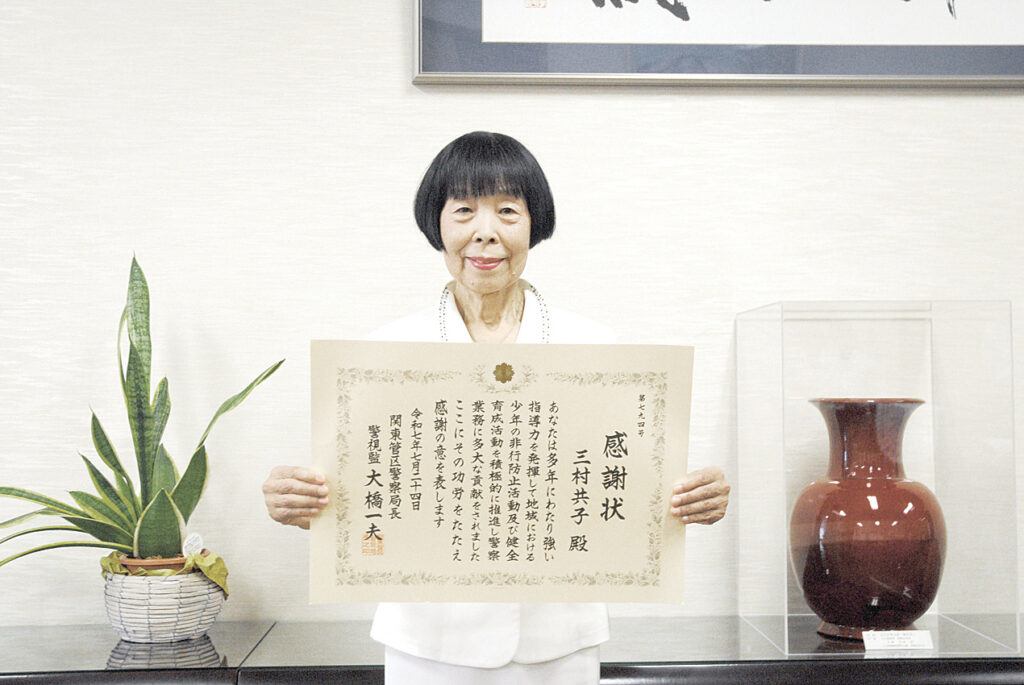 第七九四号
感謝状
三村共子 殿
あなたは多年にわたり強い
指導力を発揮して地域における
少年の非行防止活動及び健全
育成活動を積極的に推進し警察
業務に多大な貢献をされました
ここにその功労をたたえ
感謝の意を表します
令和七年七月二十四日
関東管区警察局長
警視監 大橋一夫